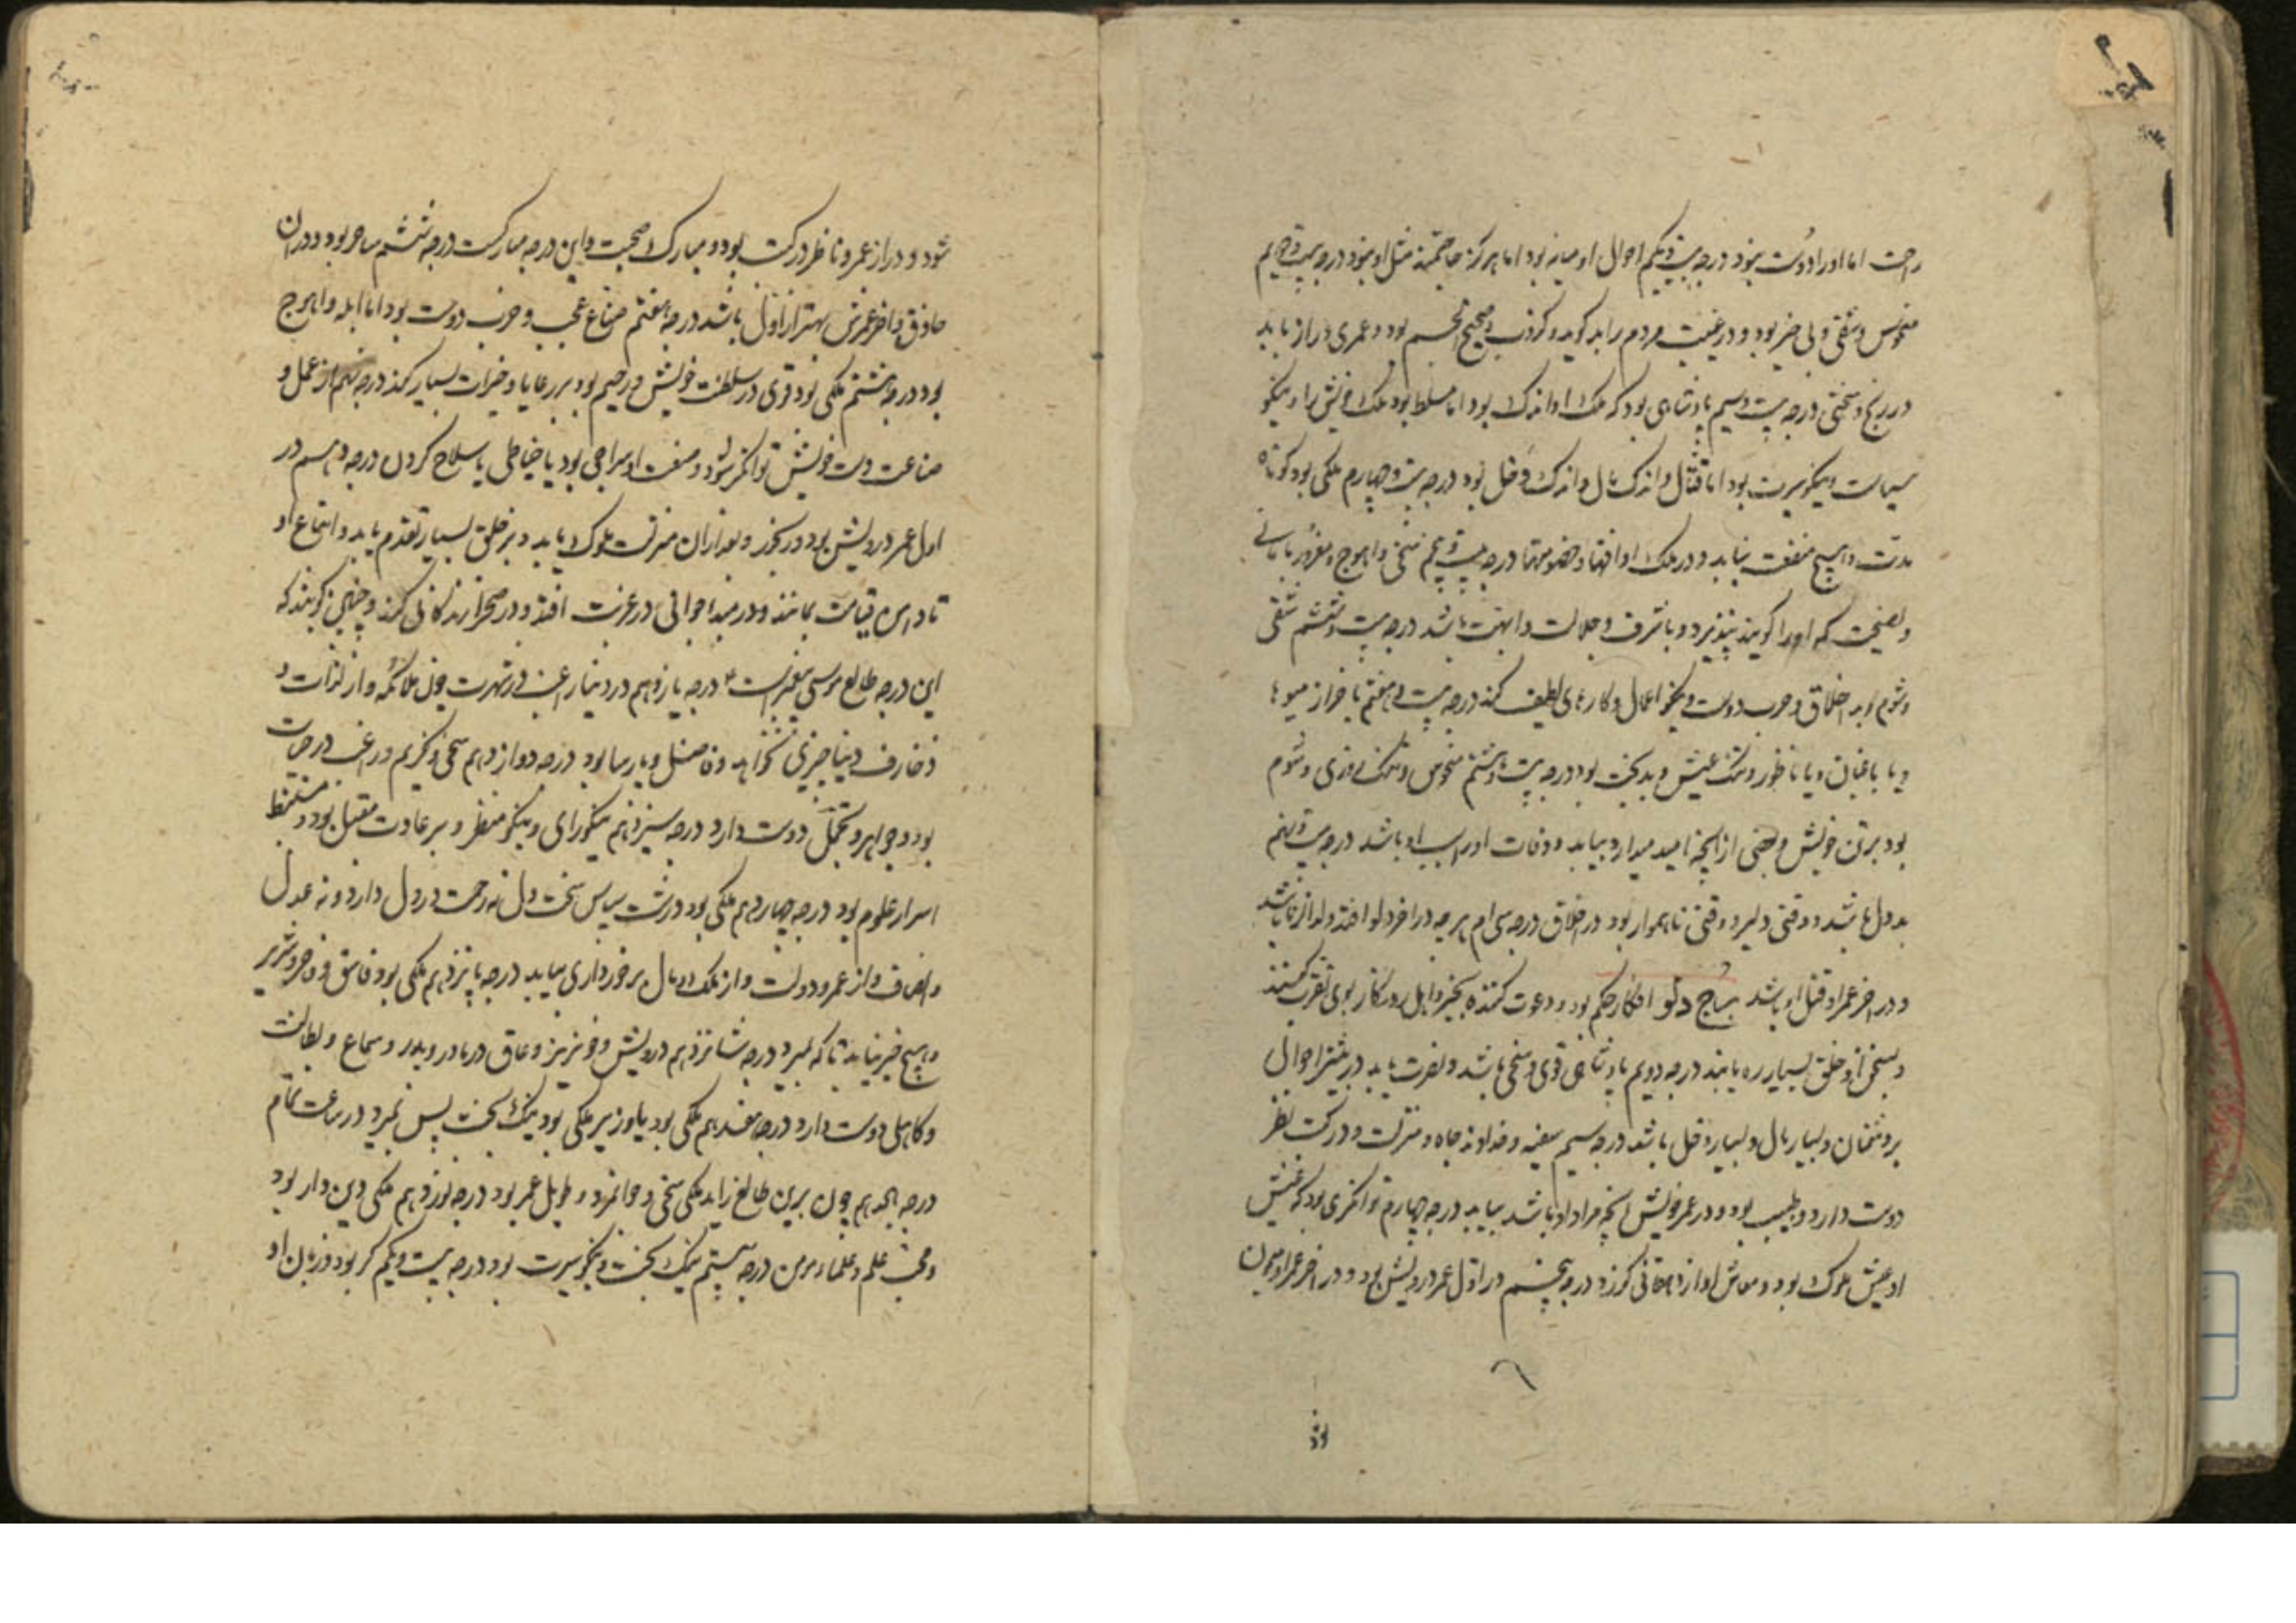 راحت اما او را دوست نبود درجه بیست و یکم احوال او میانه بود اما هرگز خاتمت مثل او نبود درجه بیست و دویم
منحوس و شقی و بی خیر بود و در غیبت مردم را بد گوید و کروب صحیح الجسم بود و عمری دراز یابد
در رنج و سختی درجه بیست و سیم پادشاهی بود که ملک او اندک بود اما مسلط بود ملک خویش را و نیکو
سیاست و نیکو سیرت بود اما قتال و اندک مال و اندک دخل بود درجه بیست و چهارم ملکی بود کوتاه
مدت و هیچ منفعت نیابد و در ملک او افتد خصومتها درجه بیست و پنجم سخی و اهوج و مغرور
و نصیحت که او را گویند نپذیرد و با شرف و جلالت و ابهت باشد درجه بیست و ششم شقی
و شوم و بد اخلاق و حرب دوست و نیکو اعمال و کارهای لطیف کند درجه بیست و هفتم
و یا باغبان و یا ناظور و تنگ عیش و بدبخت بود درجه بیست و هشتم منحوس و تنگ روزی و شوم
بود بر تن خویش و بعضی از آنچه امید میدارد بیابد و وفات او سبب او باشد درجه بیست و نهم
بد دل باشد و وقتی دلیر و وقتی ناهموار بود در اخلاق درجه سی ام هر چه در آخر دلو افتد ولد از زنا باشد
و در آخر عمر او قتل او باشد برج دلو افکار حکم بود و دعوت کننده بخیر و اهل روزگار بوی تقرب کنند
و بسخن او خلق بسیار ره یابند درجه دویم پادشاهی قوی و سخی باشد و نصرت یابد در بیشتر احوال
بر دشمنان و بسیار مال و بسیار دخل باشد درجه سیم سفیه و خداوند جاه و منزلت و در کتب نظر
دوست دارد و طبیب بود و در عمر خویش آنچه مراد او باشد بیابد درجه چهارم توانگری بود که عیش
او عیش ملوک بود و معاش او از دهقانی گذرد درجه پنجم در اول عمر درویش بود و در آخر عمر او میمون
شود و دراز عمر و ناظر در کتب بود و مبارک صحبت و این درجه مبارکست درجه ششم ساحر بود و در آن
حاذق و آخر عمرش بهتر از اول باشد درجه هفتم صناع عجب و حرب دوست بود اما ابله و اهوج
بود درجه هشتم ملکی بود قوی در سلطنت خویش و رحیم بود بر رعایا و خیرات بسیار کند درجه نهم از عمل و
صناعت دست خویش توانگر شود و صنعت او سراجی بود یا خیاطی یا سلاح کردن درجه دهم در
اول عمر درویش بود و رنجور و بعد از آن منزلت ملوک یابد و بر خلق بسیار تقدم یابد و اتباع او
تا دامن قیامت بمانند و در مبدا جوانی در غربت افتد و در صحرا زندگانی کند و چنین گویند که
این درجه طالع موسی پیغمبرست ع درجه یازدهم در دنیا راغب در شهرت چون ملائکه و از لذات و
زخارف دنیا چیزی نخواهد و فاضل و پارسا بود درجه دوازدهم سخی و کریم و راغب در خیرات
بود و جواهر و تجمل دوست دارد درجه سیزدهم نیکو رای و نیکو منظر و بر عادت مقبل بود و مستنبط
اسرار علوم بود درجه چهاردهم ملکی بود زشت سیاست سخت دل نه رحمت در دل دارد و نه عدل
و انصاف و از عمر و دولت و از ملک و مال برخورداری نیابد درجه پانزدهم ملکی بود فاسق و فاجر و شریر
و هیچ خیر نیابد تا که بمیرد درجه شانزدهم درویش و خونریز و عاق در مادر و پدر و سماع و بطالت
و کاهلی دوست دارد درجه هفدهم ملکی بود یا وزیر ملکی بود نیک بخت پس بمیرد در ساعت تمام
درجه هجدهم چون برین طالع زاید ملکی سخی و جوانمرد و طویل عمر بود درجه نوزدهم ملکی دین دار بود
و محب علم و علماء و مؤمن درجه بیستم نیک بخت و نیکو سیرت بود درجه بیست و یکم کر بود و زبان او